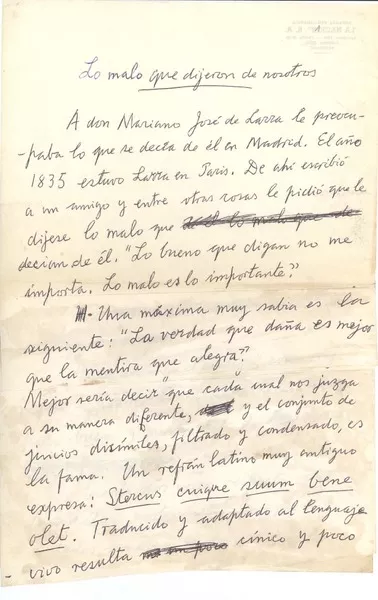 Lo malo que dijeron de nosotros
A don Mariano José de Larra le preocu-
-paba lo que se decía de él en Madrid. El año
1835 estuvo Larra en París. De ahí escribió
a un amigo y entre otras cosas le pidió que le
dijese lo malo que
decían de él. "Lo bueno que digan no me
importa. Lo malo es lo importante."
- Una máxima muy sabia es la
siguiente: "La verdad que daña es mejor
que la mentira que alegra".
Mejor sería decir "que cada cual nos juzga
a su manera diferente, y el conjunto de
juicios disímiles, filtrado y condensado, es
la fama. Un refrán latino muy antiguo
expresa: Stercus cuique suum bene
olet. Traducido y adaptado al lenguaje
vivo resulta cínico y poco